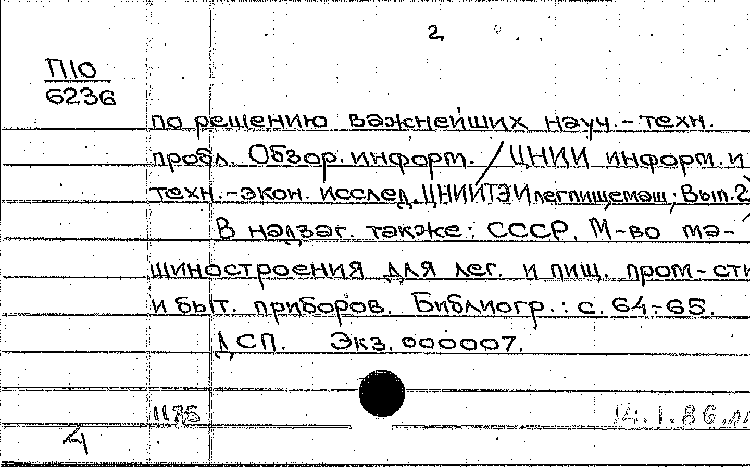 2
П10
6236
по решению важнейших науч.-техн.
пробл. Обзор. информ. / ЦНИИ информ. и
техн.-экон. исслед. ЦНИИТЭИлегпищемаш; Вып. 2)
В надзаг. также: СССР. М-во ма-
шиностроения для лег. и пищ. пром-сти
и быт. приборов. Библиогр.: с. 64-65.
ДСП. Экз. 000007.
1175
14.1.86
4